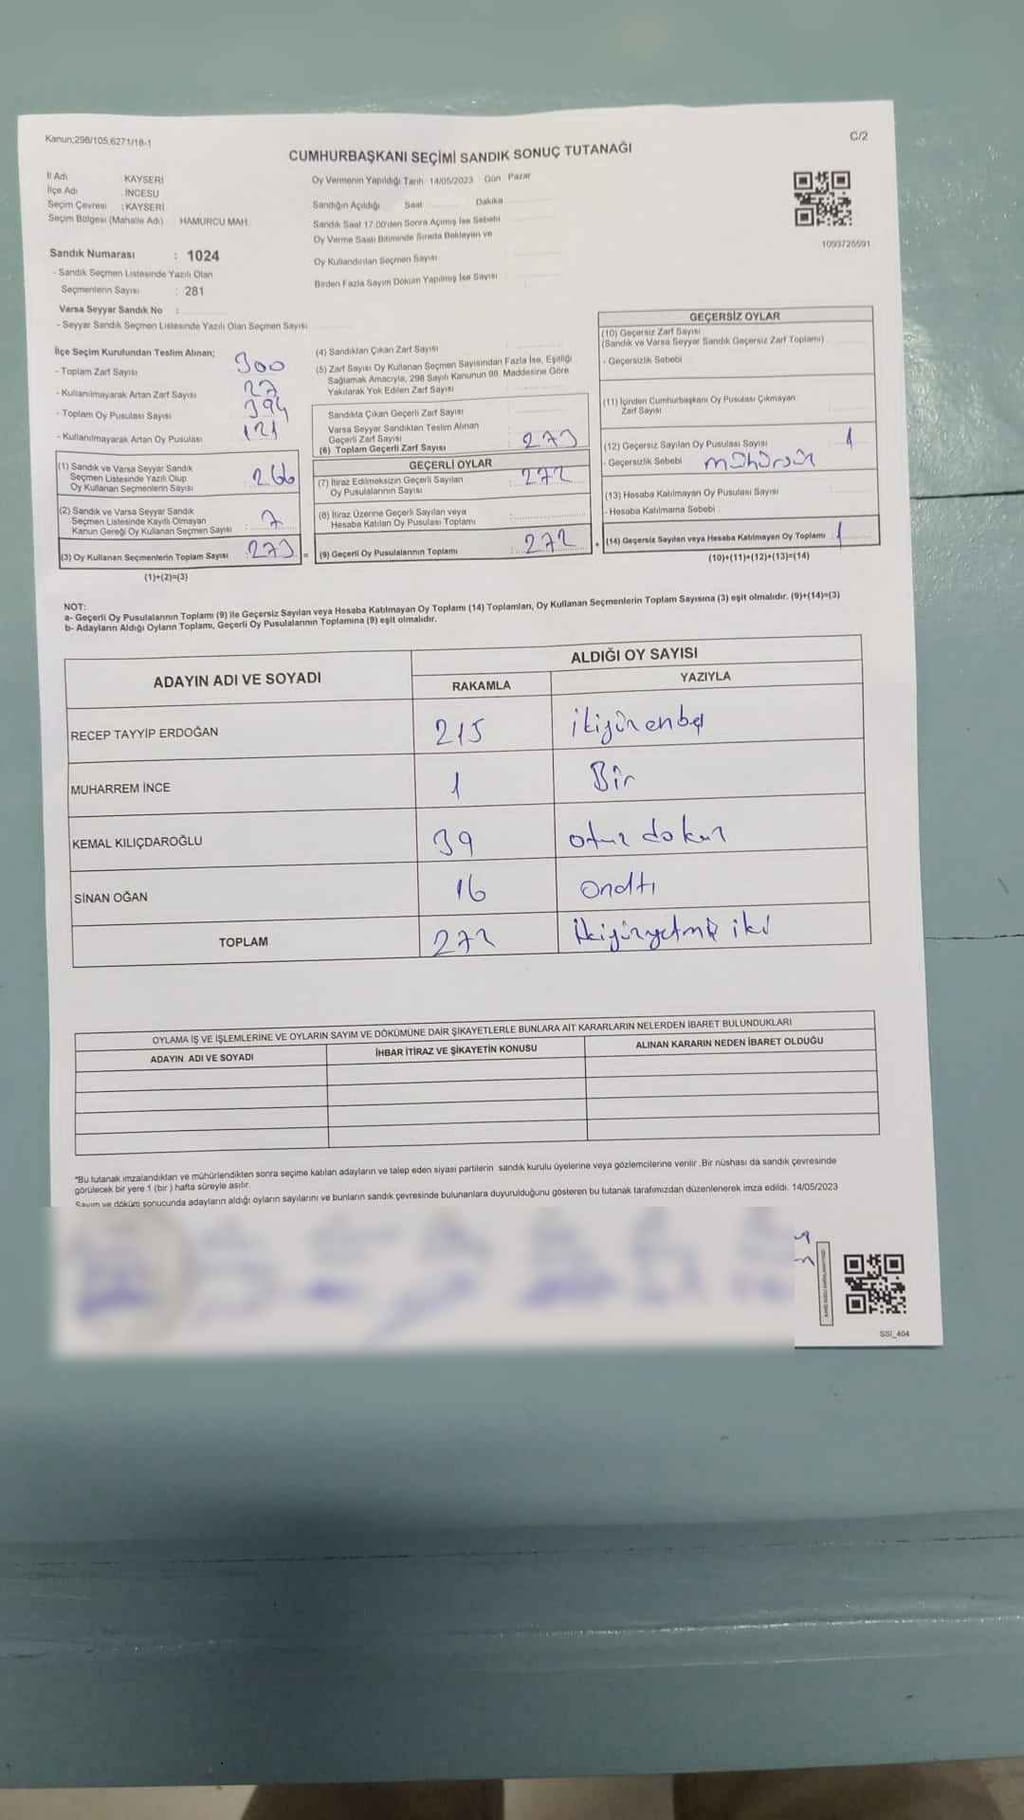 Kanun;298/105,6271/18-1
C/2
CUMHURBAŞKANI SEÇİMİ SANDIK SONUÇ TUTANAĞI
İl Adı KAYSERİ
İlçe Adı İNCESU
Seçim Çevresi : KAYSERİ
Seçim Bölgesi (Mahalle Adı) HAMURCU MAH.
Oy Vermenin Yapıldığı Tarih 14/05/2023 Gün Pazar
Sandığın Açıldığı Saat Dakika
Sandık Saat 17.00'den Sonra Açılmış İse Sebebi
Oy Verme Saati Bitiminde Sırada Bekleyen ve
Oy Kullandırılan Seçmen Sayısı
Birden Fazla Sayım Döküm Yapılmış İse Sayısı
1093726591
Sandık Numarası : 1024
- Sandık Seçmen Listesinde Yazılı Olan
Seçmenlerin Sayısı : 281
Varsa Seyyar Sandık No :
- Seyyar Sandık Seçmen Listesinde Yazılı Olan Seçmen Sayısı
İlçe Seçim Kurulundan Teslim Alınan;
- Toplam Zarf Sayısı 300
- Kullanılmayarak Artan Zarf Sayısı 27
- Toplam Oy Pusulası Sayısı 394
- Kullanılmayarak Artan Oy Pusulası 121
(1) Sandık ve Varsa Seyyar Sandık
Seçmen Listesinde Yazılı Olup
Oy Kullanan Seçmenlerin Sayısı 266
(2) Sandık ve Varsa Seyyar Sandık
Seçmen Listesinde Kayıtlı Olmayan
Kanun Gereği Oy Kullanan Seçmen Sayısı 7
(3) Oy Kullanan Seçmenlerin Toplam Sayısı 273 =
(1)+(2)=(3)
(4) Sandıktan Çıkan Zarf Sayısı
(5) Zarf Sayısı Oy Kullanan Seçmen Sayısından Fazla İse, Eşitliği
Sağlamak Amacıyla, 298 Sayılı Kanunun 98. Maddesine Göre
Yakılarak Yok Edilen Zarf Sayısı
Sandıkta Çıkan Geçerli Zarf Sayısı
Varsa Seyyar Sandıktan Teslim Alınan
Geçerli Zarf Sayısı
(6) Toplam Geçerli Zarf Sayısı 273
GEÇERLİ OYLAR
(7) İtiraz Edilmeksizin Geçerli Sayılan
Oy Pusulalarının Sayısı 272
(8) İtiraz Üzerine Geçerli Sayılan veya
Hesaba Katılan Oy Pusulası Toplamı
(9) Geçerli Oy Pusulalarının Toplamı 272 +
GEÇERSİZ OYLAR
(10) Geçersiz Zarf Sayısı
(Sandık ve Varsa Seyyar Sandık Geçersiz Zarf Toplamı)
- Geçersizlik Sebebi
(11) İçinden Cumhurbaşkanı Oy Pusulası Çıkmayan
Zarf Sayısı
(12) Geçersiz Sayılan Oy Pusulası Sayısı 1
- Geçersizlik Sebebi mühürsür
(13) Hesaba Katılmayan Oy Pusulası Sayısı
- Hesaba Katılmama Sebebi
(14) Geçersiz Sayılan veya Hesaba Katılmayan Oy Toplamı 1
(10)+(11)+(12)+(13)=(14)
NOT:
a- Geçerli Oy Pusulalarının Toplamı (9) ile Geçersiz Sayılan veya Hesaba Katılmayan Oy Toplamı (14) Toplamları, Oy Kullanan Seçmenlerin Toplam Sayısına (3) eşit olmalıdır. (9)+(14)=(3)
b- Adayların Aldığı Oyların Toplamı, Geçerli Oy Pusulalarının Toplamına (9) eşit olmalıdır.
ADAYIN ADI VE SOYADI
ALDIĞI OY SAYISI
RAKAMLA YAZIYLA
RECEP TAYYİP ERDOĞAN 215 ikiyüzonbeş
MUHARREM İNCE 1 Bir
KEMAL KILIÇDAROĞLU 39 otuz dokuz
SİNAN OĞAN 16 onaltı
TOPLAM 272 ikiyüzyetmiş iki
OYLAMA İŞ VE İŞLEMLERİNE VE OYLARIN SAYIM VE DÖKÜMÜNE DAİR ŞİKAYETLERLE BUNLARA AİT KARARLARIN NELERDEN İBARET BULUNDUKLARI
ADAYIN ADI VE SOYADI İHBAR İTİRAZ VE ŞİKAYETİN KONUSU ALINAN KARARIN NEDEN İBARET OLDUĞU
*Bu tutanak imzalandıktan ve mühürlendikten sonra seçime katılan adayların ve talep eden siyasi partilerin sandık kurulu üyelerine veya gözlemcilerine verilir .Bir nüshası da sandık çevresinde
görülecek bir yere 1 (bir ) hafta süreyle asılır.
Sayım ve döküm sonucunda adayların aldığı oyların sayılarını ve bunların sandık çevresinde bulunanlara duyurulduğunu gösteren bu tutanak tarafımızdan düzenlenerek imza edildi. 14/05/2023
SSI_404